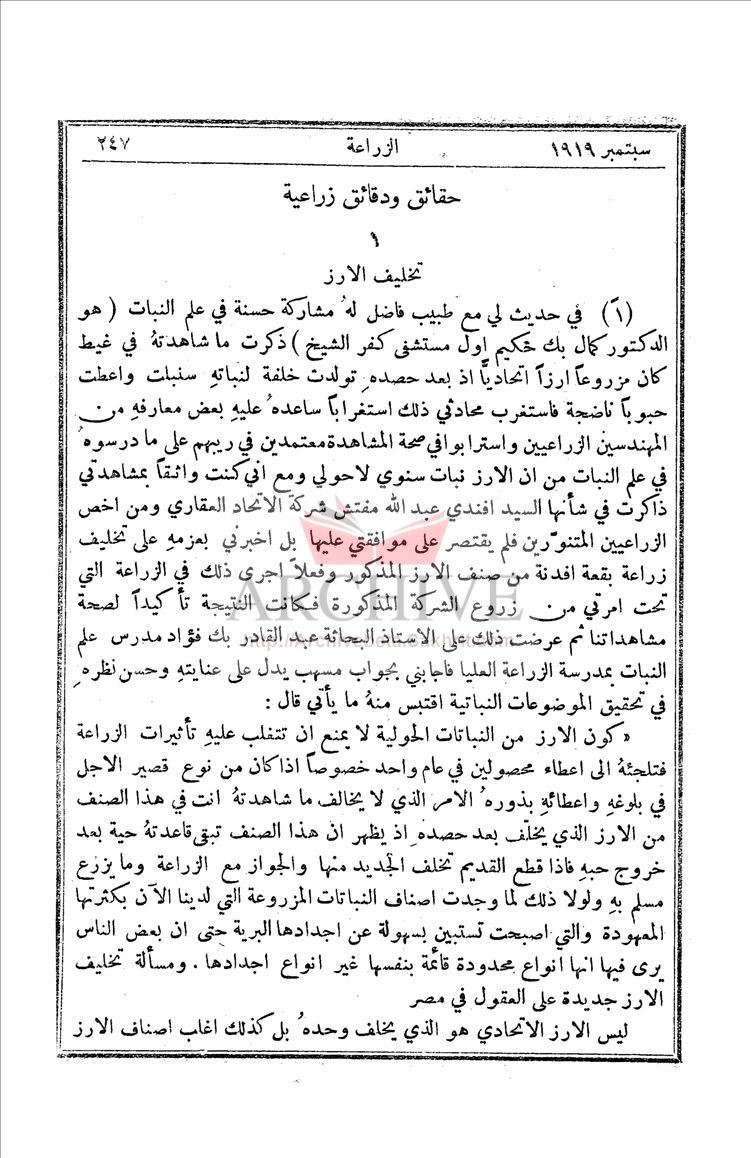 سبتمبر ١٩١٩ الزراعة ٢٤٧
حقائق ودقائق زراعية
١
تخليف الارز
(١ً) في حديث لي مع طبيب فاضل لهُ مشاركة حسنة في علم النبات ( هو
الدكتور كمال بك حكيم اول مستشفى كفر الشيخ ) ذكرت ما شاهدتهُ في غيط
كان مزروعاً ارزاً اتحاديًّا اذ بعد حصدهِ تولدت خلفة لنباتهِ سنبلت واعطت
حبوباً ناضجة فاستغرب محادثي ذلك استغراباً ساعدهُ عليهِ بعض معارفهِ من
المهندسين الزراعيين واسترابوا في صحة المشاهدة معتمدين في ريبهم على ما درسوهُ
في علم النبات من ان الارز نبات سنوي لا حولي ومع اني كنت واثقاً بمشاهدتي
ذاكرت في شأنها السيد افندي عبد الله مفتش شركة الاتحاد العقاري ومن اخص
الزراعيين المتنوّرين فلم يقتصر على موافقتي عليها بل اخبرني بعزمهِ على تخليف
زراعة بقعة افدنة من صنف الارز المذكور وفعلاً اجرى ذلك في الزراعة التي
تحت امرتي من زروع الشركة المذكورة فكانت النتيجة تأكيداً لصحة
مشاهداتنا ثم عرضت ذلك على الاستاذ البحاثة عبد القادر بك فؤاد مدرس علم
النبات بمدرسة الزراعة العليا فاجابني بجواب مسهب يدل على عنايتهِ وحسن نظرهِ
في تحقيق الموضوعات النباتية اقتبس منهُ ما يأتي قال :
« كون الارز من النباتات الحولية لا يمنع ان تتغلب عليهِ تأثيرات الزراعة
فتلجئهُ الى اعطاء محصولين في عام واحد خصوصاً اذا كان من نوع قصير الاجل
في بلوغهِ واعطائهِ بذورهُ الامر الذي لا يخالف ما شاهدتهُ انت في هذا الصنف
من الارز الذي يخلّف بعد حصدهِ اذ يظهر ان هذا الصنف تبقى قاعدتهُ حية بعد
خروج حبهِ فاذا قطع القديم تخلف الجديد منها والجواز مع الزراعة وما يزرع
مسلم بهِ ولولا ذلك لما وجدت اصناف النباتات المزروعة التي لدينا الآن بكثرتها
المعهودة والتي اصبحت تستبين بسهولة عن اجدادها البرية حتى ان بعض الناس
يرى فيها انها انواع محدودة قائمة بنفسها غير انواع اجدادها . ومسألة تخليف
الارز جديدة على العقول في مصر
ليس الارز الاتحادي هو الذي يخلف وحدهُ بل كذلك اغلب اصناف الارز
ARCHIVE